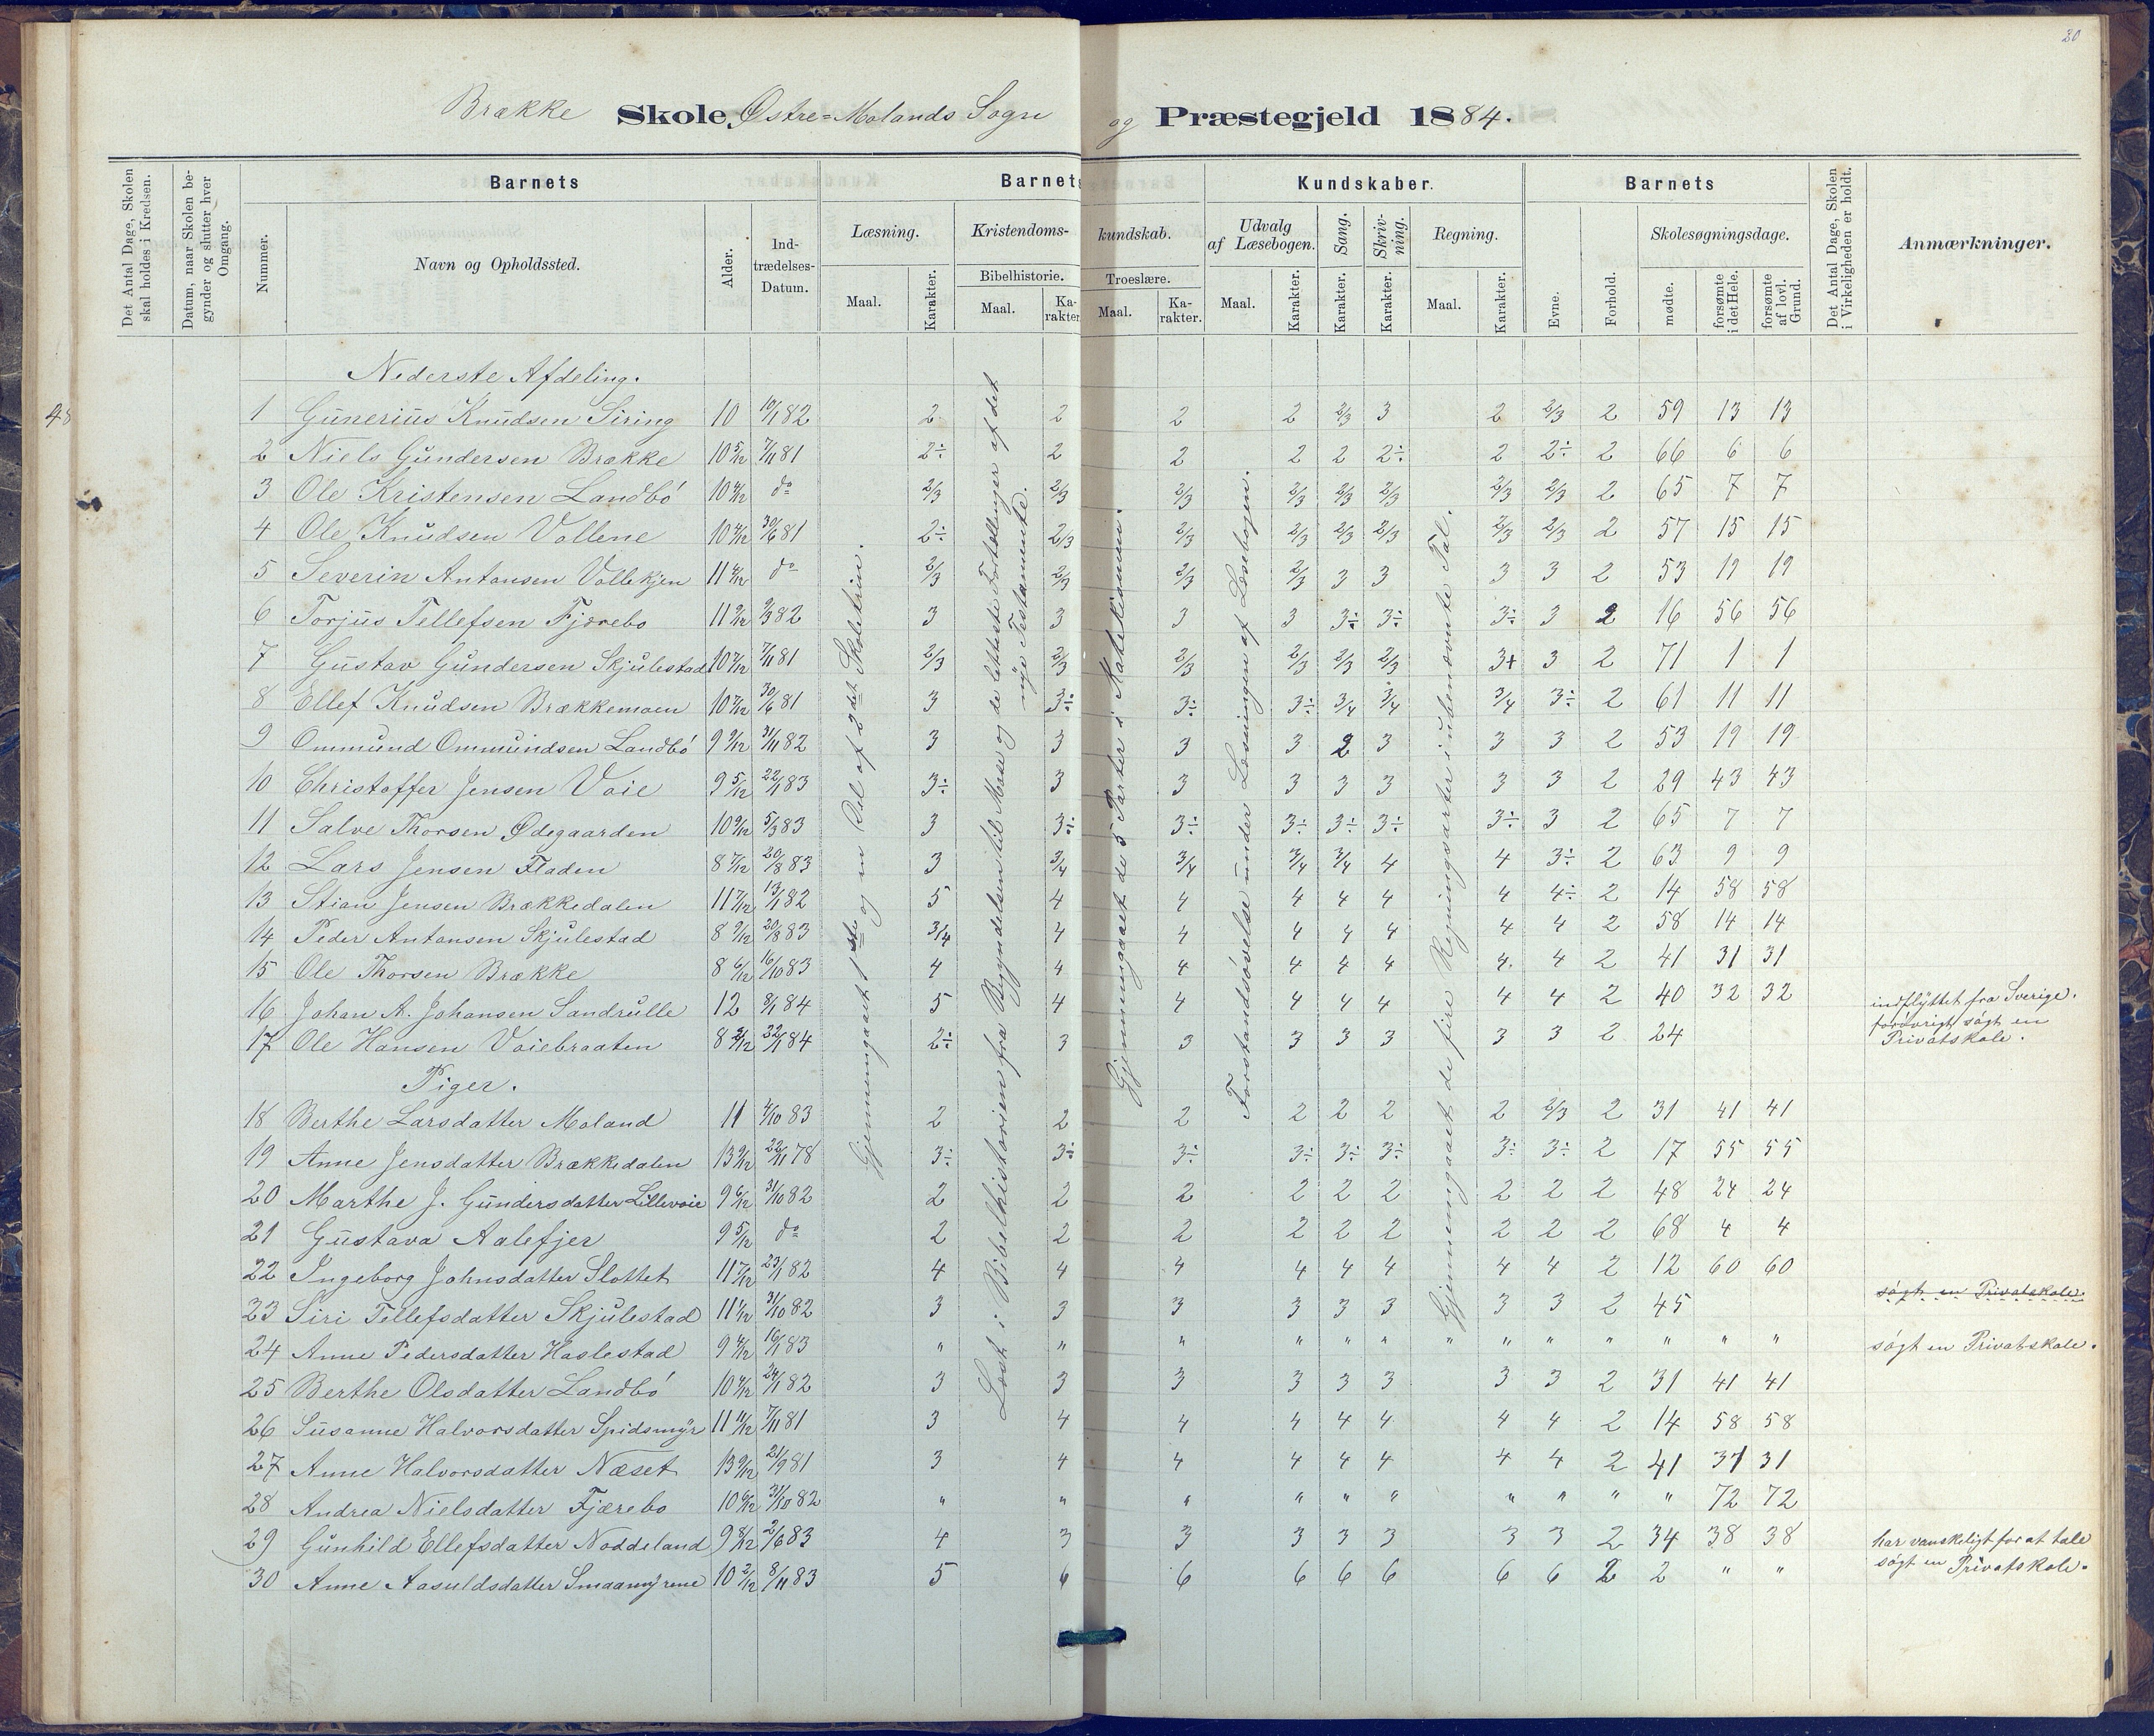 20
Brække Skole, Østre=Molands Sogn og Præstegjeld 1884.
Det Antal Dage, Skolen skal holdes i Kredsen.
Datum, naar Skolen begynder og slutter hver Omgang.
Barnets
Nummer.
Navn og Opholdssted.
Alder.
Indtrædelses-Datum.
Barnets Kundskaber.
Læsning.
Maal.
Karakter.
Kristendoms-kundskab.
Bibelhistorie.
Maal.
Karakter.
Troeslære.
Maal.
Karakter.
Udvalg af Læsebogen.
Maal.
Karakter.
Sang.
Karakter.
Skrivning.
Karakter.
Regning.
Maal.
Karakter.
Barnets
Evne.
Forhold.
Skolesøgningsdage.
mødte.
forsømte i det Hele.
forsømte af lovl. Grund.
Det Antal Dage, Skolen i Virkeligheden er holdt.
Anmærkninger.
48
Nederste Afdeling.
1 Gunerius Knudsen Siring 10 10/1 82 2 2 2 2 2/3 3 2 2/3 2 59 13 13
2 Niels Gundersen Brække 10 5/12 7/11 81 2÷ 2 2 2 2 2÷ 2 2÷ 2 66 6 6
3 Ole Kristensen Landbö 10 4/12 do 2/3 2/3 2/3 2/3 2/3 2/3 2/3 2/3 2 65 7 7
4 Ole Knudsen Vollene 10 4/12 30/6 81 2÷ 2/3 2/3 2/3 2/3 2/3 2/3 2/3 2 57 15 15
5 Severin Antonsen Vollekjen 11 4/12 do 2/3 2/3 2/3 2/3 3 3 3 3 2 53 19 19
6 Torjus Tellefsen Fjærebo 11 9/12 9/3 82 3 3 3 3 3÷ 3÷ 3÷ 3 2 16 56 56
7 Gustav Gundersen Skjulestad 10 7/12 7/11 81 2/3 2/3 2/3 2/3 2/3 2/3 3+ 3 2 71 1 1
8 Ellef Knudsen Brækkemoen 10 7/12 30/6 81 3 3÷ 3÷ 3÷ 3/4 3/4 3/4 3÷ 2 61 11 11
9 Ommund Ommundsen Landbö 9 9/12 31/11 82 3 3 3 3 2 3 3 3 2 53 19 19
10 Christoffer Jensen Voie 9 5/12 22/1 83 3÷ 3 3 3 3 3 3 3 2 29 43 43
11 Salve Thorsen Ødegaarden 10 9/12 5/3 83 3 3÷ 3÷ 3÷ 3÷ 3÷ 3÷ 3 2 65 7 7
12 Lars Jensen Fladen 8 7/12 20/8 83 3 3/4 3/4 3/4 3/4 4 4 3÷ 2 63 9 9
13 Stian Jensen Brækkedalen 11 7/12 13/1 82 5 4 4 4 4 4 4 4÷ 2 14 58 58
14 Peder Antonsen Skjulestad 8 9/12 20/8 83 3/4 4 4 4 4 4 4 4 2 58 14 14
15 Ole Thorsen Brække 8 6/12 16/10 83 4 4 4 4 4 4 4. 4 2 41 31 31
16 Johan A. Johansen Sandrulle 12 8/1 84 5 4 4 4 4 4 4 4 2 40 32 32 indflyttet fra Sverige.
17 Ole Hansen Voiebraaten 8 2/12 22/1 84 2÷ 3 3 3 3 3 3 3 2 24 forövrigt søgt en
Privatskole.
Piger.
18 Berthe Larsdatter Moland 11 4/10 83 2 2 2 2 2 2 2 2/3 2 31 41 41
19 Anne Jensdatter Brækkedalen 13 9/12 22/11 78 3÷ 3÷ 3÷ 3÷ 3÷ 3÷ 3÷ 3÷ 2 17 55 55
20 Marthe J. Gundersdatter Lillevoie 9 6/12 31/10 82 2 2 2 2 2 2 2 2 2 48 24 24
21 Gustava Aalefjer 9 5/12 do 2 2 2 2 2 2 2 2 2 68 4 4
22 Ingeborg Johnsdatter Slottet 11 7/12 23/1 82 4 4 4 4 4 4 4 4 2 12 60 60
23 Siri Tellefsdatter Skjulestad 11 1/12 31/10 82 3 3 3 3 3 3 3 3 2 45 søgt en Privatskole.
24 Anne Pedersdatter Haslestad 9 4/12 16/1 83 " " " " " " " " " " " " " søgt en Privatskole.
25 Berthe Olsdatter Landbö 10 4/12 24/1 82 3 3 3 3 3 3 3 3 2 31 41 41
26 Susanne Halvorsdatter Spidsmyr 11 11/12 7/11 81 3 4 4 4 4 4 4 4 2 14 58 58
27 Anne Halvorsdatter Næset 13 9/12 21/9 81 3 4 4 4 4 4 4 4 2 41 31 31
28 Andrea Nielsdatter Fjærebo 10 6/12 31/10 82 " " " " " " " " " " 72 72
29 Gunhild Ellefsdatter Noddeland 9 8/12 2/6 83 4 3 3 3 3 3 3 3 2 34 38 38 har vanskeligt for at tale
30 Anne Aasuldsdatter Smaamyrene 10 2/12 8/11 83 5 6 6 6 6 6 6 6 2 2 " " søgt en Privatskole.
Gjennemgaaet 1ste og en Del af 2det Skoletrin.
Læst i Bibelhistorien fra Begyndelsen til Mose og de letteste Fortællinger af det
nye Testamente.
Gjennemgaaet de 5 Parter i Katekismen.
Forstandsøvelse under Læsningen af Læsebogen.
Gjennemgaaet de fire Regningsarter i ubenævnte Tal.